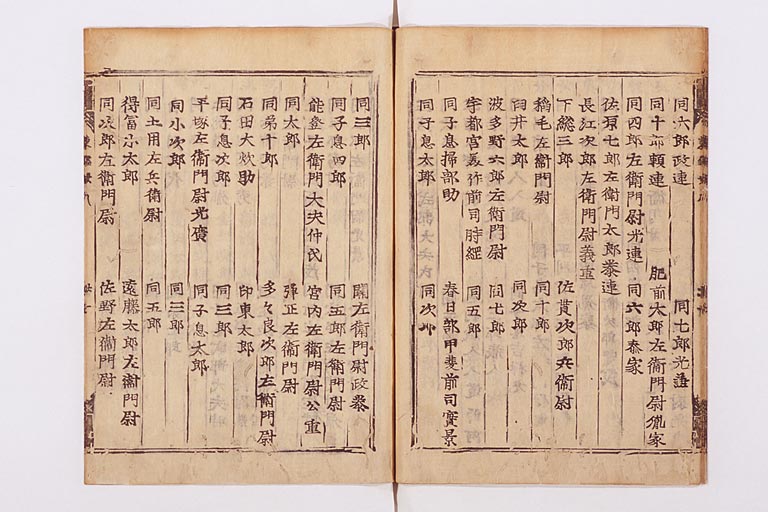 同六郎政連　同七郎光連
同十郎頼連　肥前太郎左衛門尉胤家
同四郎左衛門尉光連　同六郎泰家
佐原七郎左衛門太郎泰連
長江次郎左衛門尉義重
下総三郎　佐貫次郎兵衛尉
稲毛左衛門尉　同十郎
臼井太郎　同次郎
波多野六郎左衛門尉　同七郎
宇都宮美弥前司時経　同五郎
同子息掃部助　春日部甲斐前司實景
同子息太郎　同次郎
同三郎　関左衛門尉政泰
同子息四郎　同五郎左衛門尉
能登左衛門大夫仲氏　宮内左衛門尉公重
同太郎　弾正左衛門尉
同弟十郎　多々良次郎左衛門尉
石田大炊助　印東太郎
同子息次郎　同三郎
平塚左衛門尉光廣　同子息太郎
同小次郎　同三郎
同土用左兵衛尉　同五郎
得富小太郎　遠藤太郎左衛門尉
同次郎左衛門尉　佐野左衛門尉